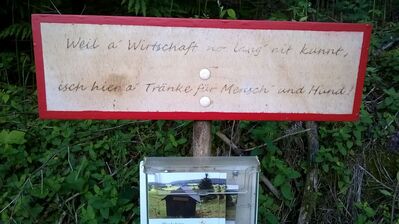 Weil a' Wirtschaft no lang' nit kunnt,
isch hier a' Tränke für Mensch und Hund!